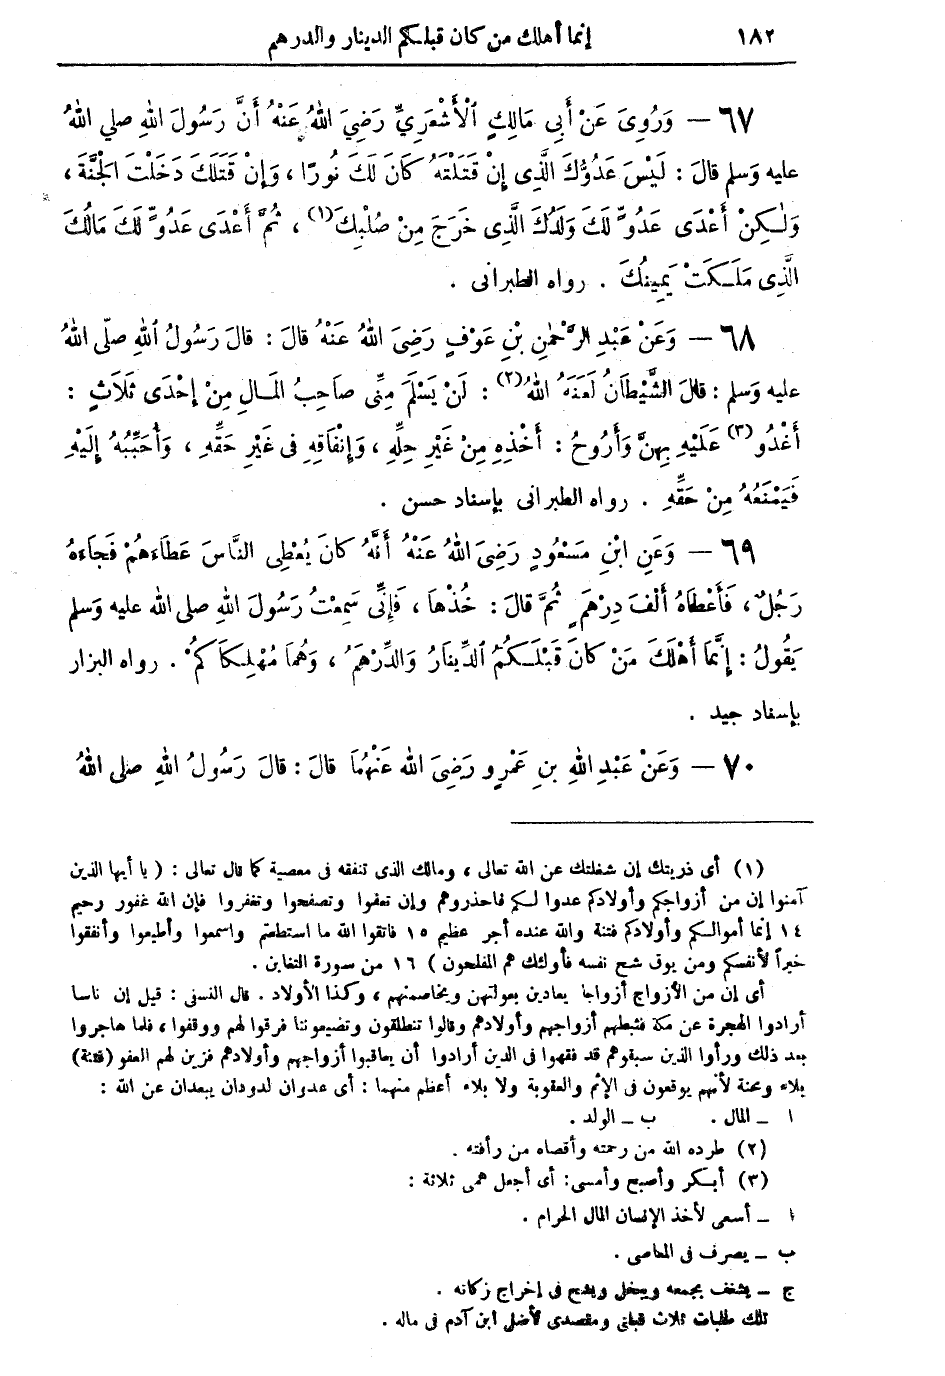 ١٨٢ إنما أهلك من كان قبلكم الدينار والدرهم
٦٧ – وَرُوِىَ عَنْ أَبِى مَالِكٍ الْأَشْعَرِيِّ رَضِيَ اللهُ عَنْهُ أَنَّ رَسُولَ اللهِ صلى اللهُ
عليه وَسلم قالَ : لَيْسَ عَدُوُّكَ الَّذِى إِنْ قَتَلْتَهُ كَانَ لَكَ نُورًا ، وَإِنْ قَتَلَكَ دَخَلْتَ الْجَنَّةَ ،
وَلٰكِنْ أَعْدَى عَدُوٍّ لَكَ وَلَدُكَ الَّذِى خَرَجَ مِنْ صُلْبِكَ (١) ، ثُمَّ أَعْدَى عَدُوٍّ لَكَ مَالُكَ
الَّذِى مَلَكَتْ يَمِينُكَ . رواه الطبرانى .
٦٨ – وَعَنْ عَبْدِ الرَّحْمٰنِ بْنِ عَوْفٍ رَضِىَ اللهُ عَنْهُ قالَ : قالَ رَسُولُ اللهِ صلّى اللهُ
عليه وَسلم : قالَ الشَّيْطَانُ لَعَنَهُ اللهُ (٢) : لَنْ يَسْلَمَ مِنِّى صَاحِبُ الْمَالِ مِنْ إِحْدَى ثَلَاثٍ :
أَغْدُو (٣) عَلَيْهِ بِهِنَّ وَأَرُوحُ : أَخْذِهِ مِنْ غَيْرِ حِلِّهِ ، وَإِنْفَاقِهِ فِى غَيْرِ حَقِّهِ ، وَأُحَبِّبُهُ إِلَيْهِ
فَيَمْنَعُهُ مِنْ حَقِّهِ . رواه الطبرانى بإسناد حسن .
٦٩ – وَعَنِ ابْنِ مَسْعُودٍ رَضِىَ اللهُ عَنْهُ أَنَّهُ كَانَ يُعْطِى النَّاسَ عَطَاءَهُمْ فَجَاءَهُ
رَجُلٌ ، فَأَعْطَاهُ أَلْفَ دِرْهَمٍ ثُمَّ قالَ : خُذْهَا ، فَإِنِّى سَمِعْتُ رَسُولَ اللهِ صلى الله عليه وَسلم
يَقُولُ : إِنَّمَا أَهْلَكَ مَنْ كَانَ قَبْلَكُمُ الدِّينَارُ وَالدِّرْهَمُ ، وَهُمَا مُهْلِكَاكُمْ . رواه البزار
بإسناد جيد .
٧٠ – وَعَنْ عَبْدِ اللهِ بنِ عَمْرٍو رَضِىَ الله عَنْهُمَا قالَ : قالَ رَسُولُ اللهِ صلى اللهُ
(١) أى ذريتك إن شغلتك عن الله تعالى ، ومالك الذى تنفقه فى معصية كما قال تعالى : ( يا أيها الذين
آمنوا إن من أزواجكم وأولادكم عدوا لكم فاحذروهم وإن تعفوا وتصفحوا وتغفروا فإن الله غفور رحيم
١٤ إنما أموالكم وأولادكم فتنة والله عنده أجر عظيم ١٥ فاتقوا الله ما استطعتم واسمعوا وأطيعوا وأنفقوا
خيراً لأنفسكم ومن يوق شح نفسه فأولئك هم المفلحون ) ١٦ من سورة التغابن .
أى إن من الأزواج أزواجا يعادين بعولتهن ويخاصمنهم ، وكذا الأولاد . قال النسفى : قيل إن ناسا
أرادوا الهجرة عن مكة فثبطهم أزواجهم وأولادهم وقالوا تنطلقون وتضيعوننا فرقوا لهم ووقفوا ، فلما هاجروا
بعد ذلك ورأوا الذين سبقوهم قد فقهوا فى الدين أرادوا أن يعاقبوا أزواجهم وأولادهم فزين لهم العفو ( فتنة )
بلاء ومحنة لأنهم يوقعون فى الإثم والعقوبة ولا بلاء أعظم منهما : أى عدوان لدودان يبعدان عن الله :
ا – المال . ب – الولد .
(٢) طرده الله من رحمته وأقصاه من رأفته .
(٣) أبكر وأصبح وأمسى : أى أجعل همى ثلاثة :
ا – أسعى لأخذ الإنسان المال الحرام .
ب – يصرف فى المعاصى .
ج – يشغف بجمعه ويبخل ويشح فى إخراج زكاته .
تلك طلبات ثلاث قبلى ومقصدى لأضل ابن آدم فى ماله .